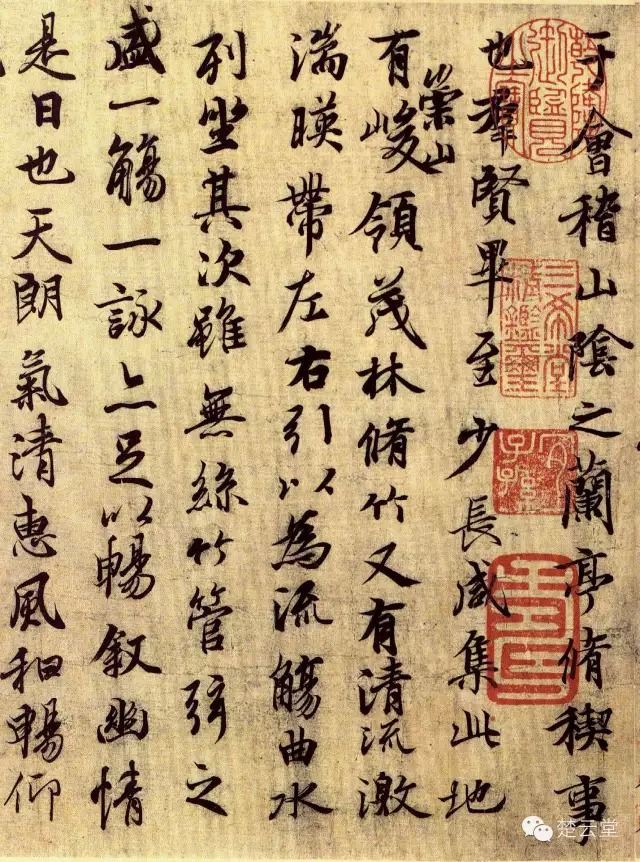 于會稽山陰之蘭亭脩稧事
也羣賢畢至少長咸集此地
有崇山峻領茂林脩竹又有清流激
湍暎帶左右引以為流觴曲水
列坐其次雖無絲竹管弦之
盛一觴一詠亦足以暢叙幽情
是日也天朗氣清惠風和暢仰
三希堂精鑑璽
宜子孫
楚云堂